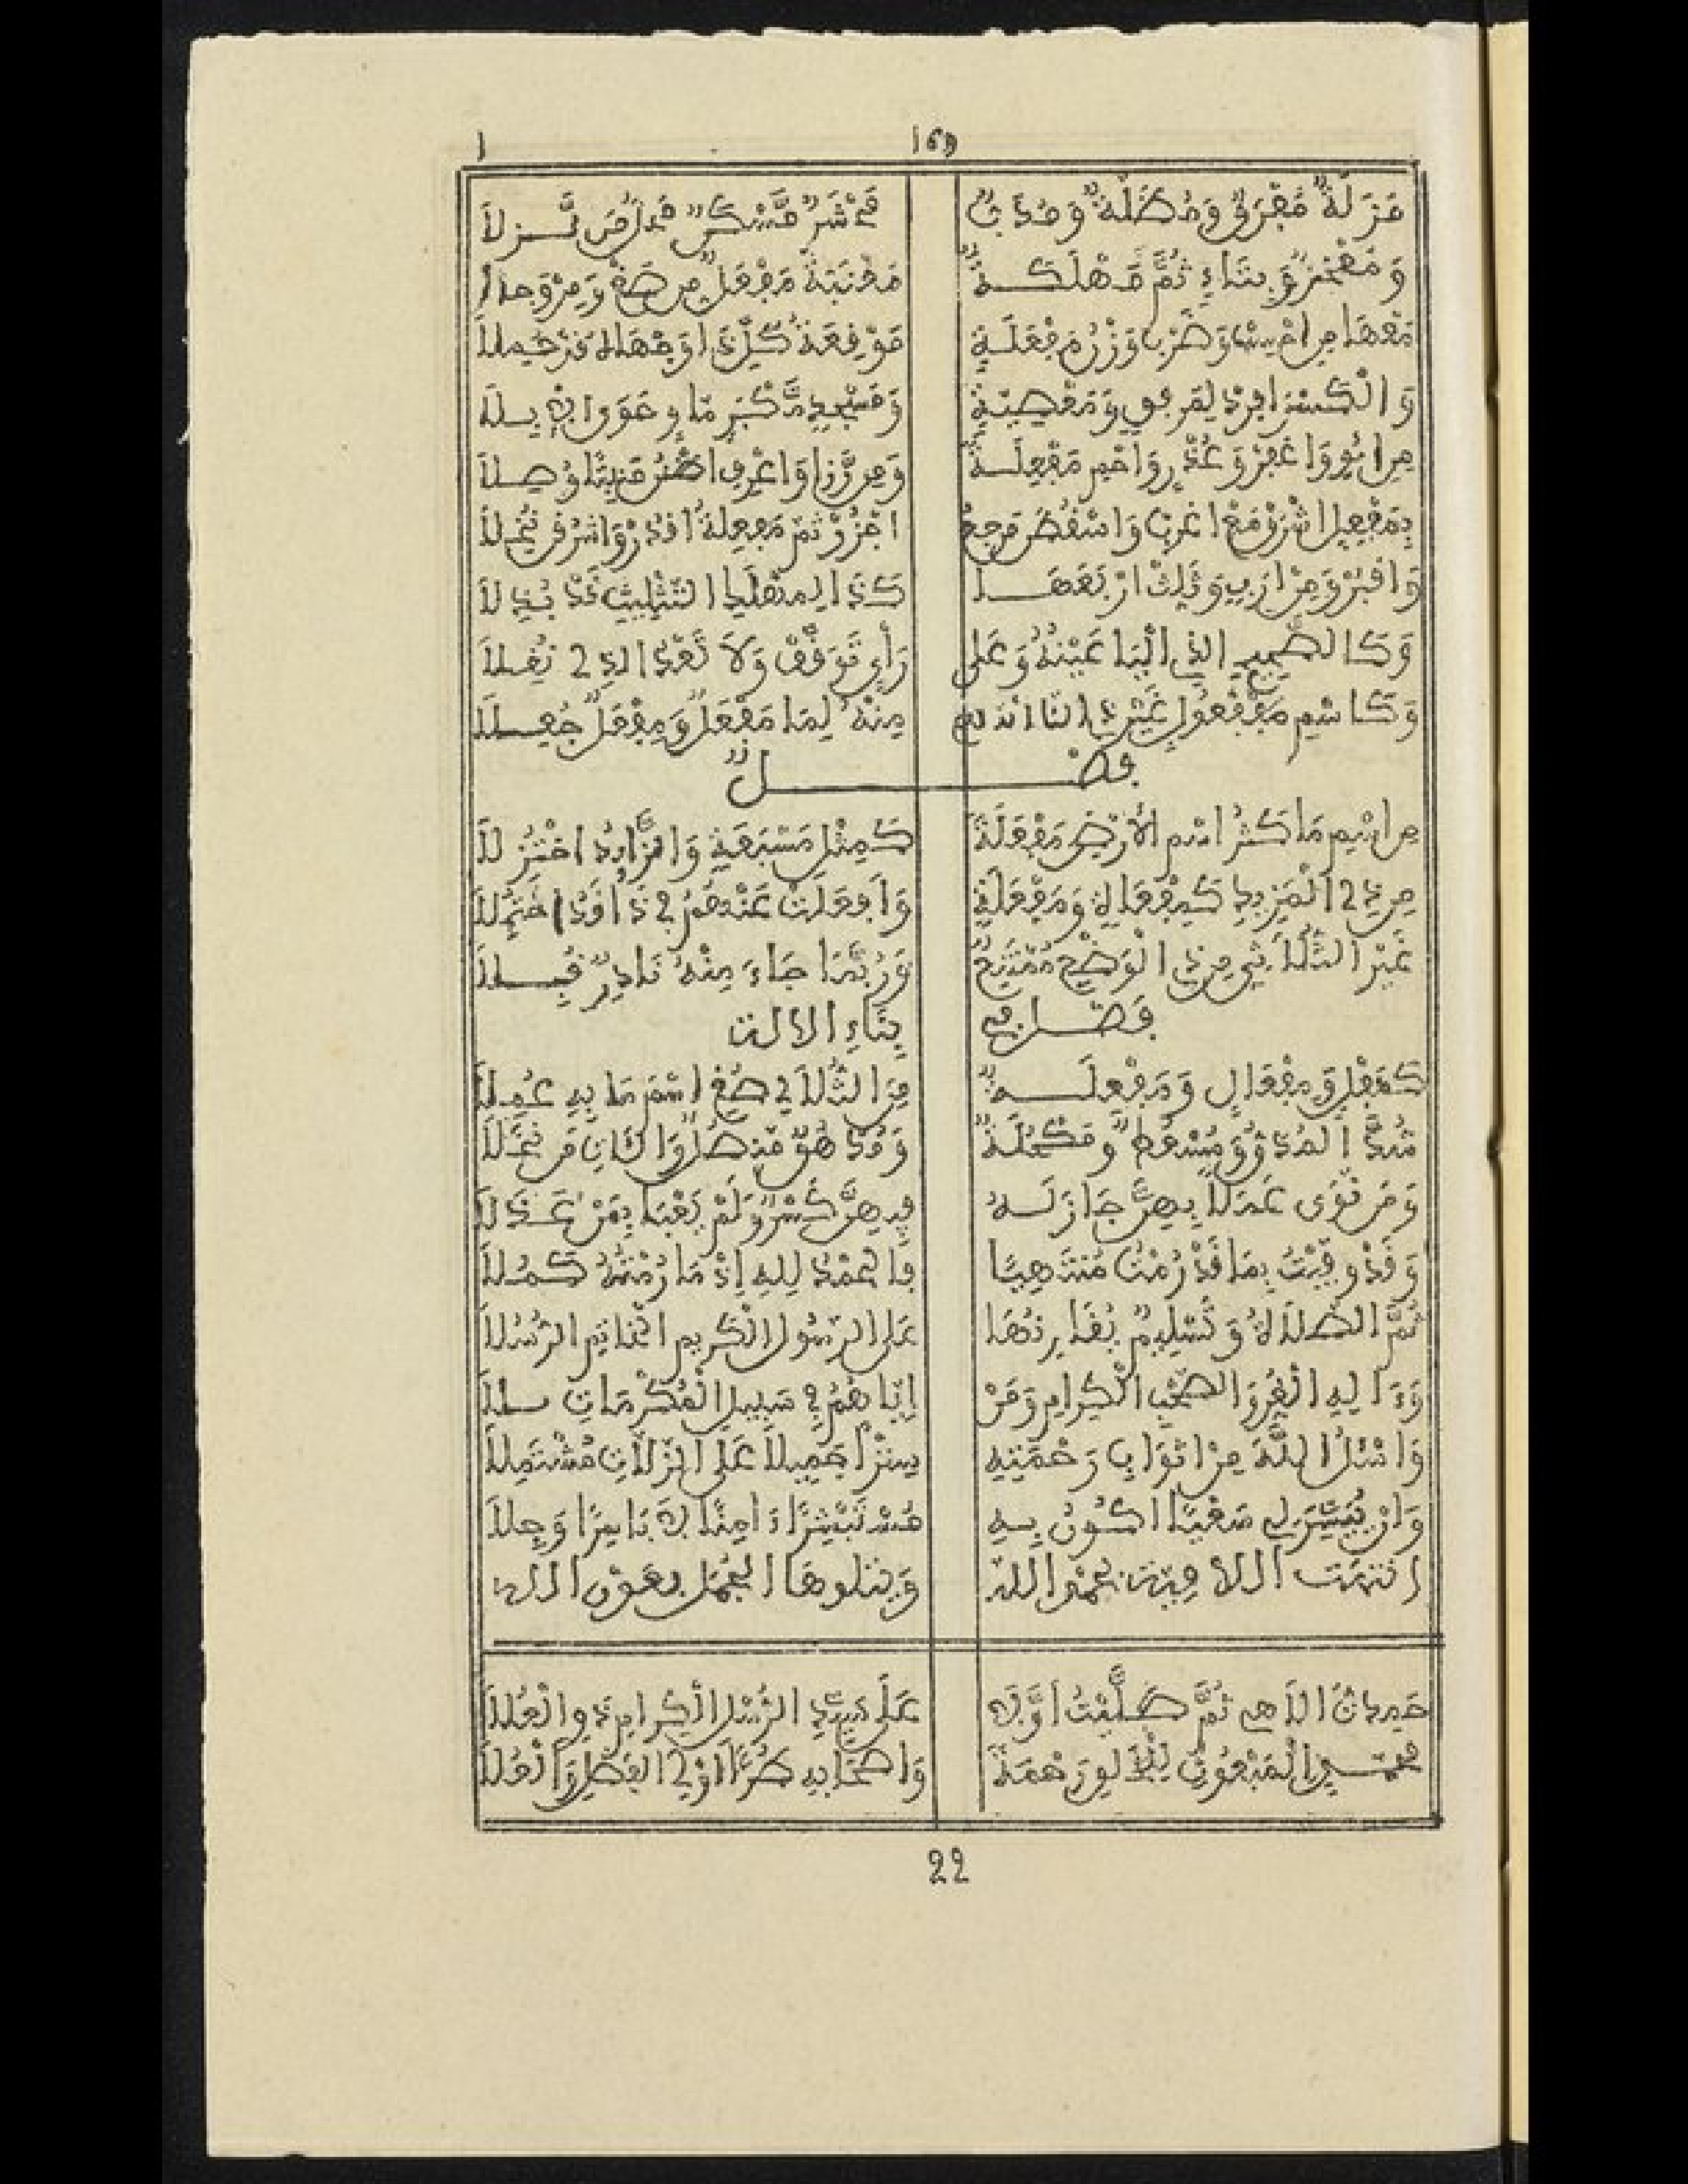 169
مَزَلَّةٌ مَفْرَقٌ وَمُضَلَّةٌ وَمَدَبٌّ مَحْشَرٌ مَسْكَنٌ مَحَلُّ مَن نَّزَلاَ
وَمَعْجَزٌ وَبِتَاءٍ ثُمَّ مَهْلَكَةٌ مَعْتَبَةٌ مَفْعَلٌ مِن ضَعْ وَمِنْ وَجِلاَ
مَعْهَا مِن احْسِبْ وَضَرْبٍ وَزْنُ مَفْعَلَةٍ مَوْقِعَةٌ كُلُّ ذَا وَجْهَاهُ قَدْ حُمِلاَ
وَالْكَسْرَ افْرِدْ لِمَرْفِقٍ وَمَعْصِيَةٍ وَمَسْجِدٍ مَّكْبِرٍ مَأْوٍ حَوَى الاِبِلاَ
مِن ائْوِ وَاغْفِرْ وَعُذْرٍ وَاحْمِ مَفْعِلَةٌ وَمِن رَّزَا وَاعْرِفِ اظْنُنْ مَنْبِتٌ وُصِلاَ
بِمَفْعِلِ اشْرُقْ مَعَ اغْرُبْ وَاسْقُطَنْ رَجِعُ اجْزُرْ ثُمَّ مَفْعِلَةُ اقْدُرْ وَاشْرُقَنْ نُخِلاَ
وَاقْبُرْ وَمِنْ ارَبٍ وَثَلِّثْ ارْبَعَهَا كَذَا لِمَهْلَكٍ التَّثْلِيثُ قَدْ بُذِلاَ
وَكَالصَّحِيحِ الذِي الْيَا عَيْنُهُ وَعَلَى رَأْيٍ تَوَقَّفْ وَلاَ تَعْدُ الذِي نُقِلاَ
وَكَاسْمِ مَفْعُولِ غَيْرِ ذِي الثَّلاثَةِ صُغْ مِنْهُ لِمَا مَفْعَلٌ وَمَفْعِلٌ جُعِلاَ
فَصْلٌ
مِن اسْمِ مَا كَثُرَ اسْمُ الاَرْضِ مَفْعَلَةٌ كَمِثْلِ مَسْبَعَةٍ وَالزَّائِدُ اخْتُزِلاَ
مِن ذِي الْمَزِيدِ كَمَفْعَاةٍ وَمَفْعَلَةٍ وَأَفْعَلَتْ عَنْهُمُ فِي ذَا قَدْ احْتُمِلاَ
غَيْرُ الثُّلاَثِي مِن ذِي الْوَضْعِ مُمْتَنِعٌ وَرُبَّمَا جَاءَ مِنْهُ نَادِرٌ قُبِلاَ
فَصْلٌ فِي بِنَاءِ الالة
كَمِفْعَلٍ وَمِفْعَالٍ وَمِفْعَلَةٌ مِنَ الثُّلاَثِي صُغِ اسْمَ مَا بِهِ عُمِلاَ
شَذَّ الْمُدُقُّ وَمُسْعُطٌ وَمُكْحُلَةٌ وَمُدْهُنٌ مُنْصُلٌ وَالآتِ مِنْ نَخَلاَ
وَمَنْ نَوَى عَمَلاً بِهِنَّ جَازَ لَهُ فِيهِنَّ كَسْرٌ وَلَمْ يَعْبَأْ بِمَنْ عَذَلاَ
وَقَدْ وَفَيْتُ بِمَا قَدْ رُمْتُ مُنْتَهِيًا فَالْحَمْدُ لِلهِ إِذْ مَا رُمْتُهُ كَمُلاَ
ثُمَّ الصَّلاَةُ وَتَسْلِيمٌ يُقَارِنُهَا عَلَى الرَّسُولِ الْكَرِيمِ الْخَاتِمِ الرُّسُلاَ
وَءَالِهِ الْغُرِّ وَالصَّحْبِ الْكِرَامِ وَمَنْ إِيَّاهُمُ فِي سَبِيلِ الْمَكْرُمَاتِ تلا
وَاسْئَلُ اللَّهَ مِنْ اثْوَابِ رَحْمَتِهِ سِتْرًا جَمِيلاً عَلَى الزَّلاَّتِ مُشْتَمِلاَ
وَانْ يُيَسِّرَ لِي سَعْيًا اكُونُ بِهِ مُسْتَبْشِرًا ءَامِنًا لاَ بَاسِرًا وَجِلاَ
انتهت اللامية بحمد الله وَيتلوها الجمل بعون الله
حَمِدتُّ الاَهِي ثُمَّ صَلَّيْتُ أَوَّلاَ عَلَى سَيِّدِ الرُّسْلِ الْكِرَامِ ذَوِي الْعُلاَ
محمد الْمَبْعُوثِ لِلْخَلْقِ رَحْمَةً وَأَصْحَابِهِ طُرًّا أُولِي الْفَضْلِ وَالْعُلاَ
22